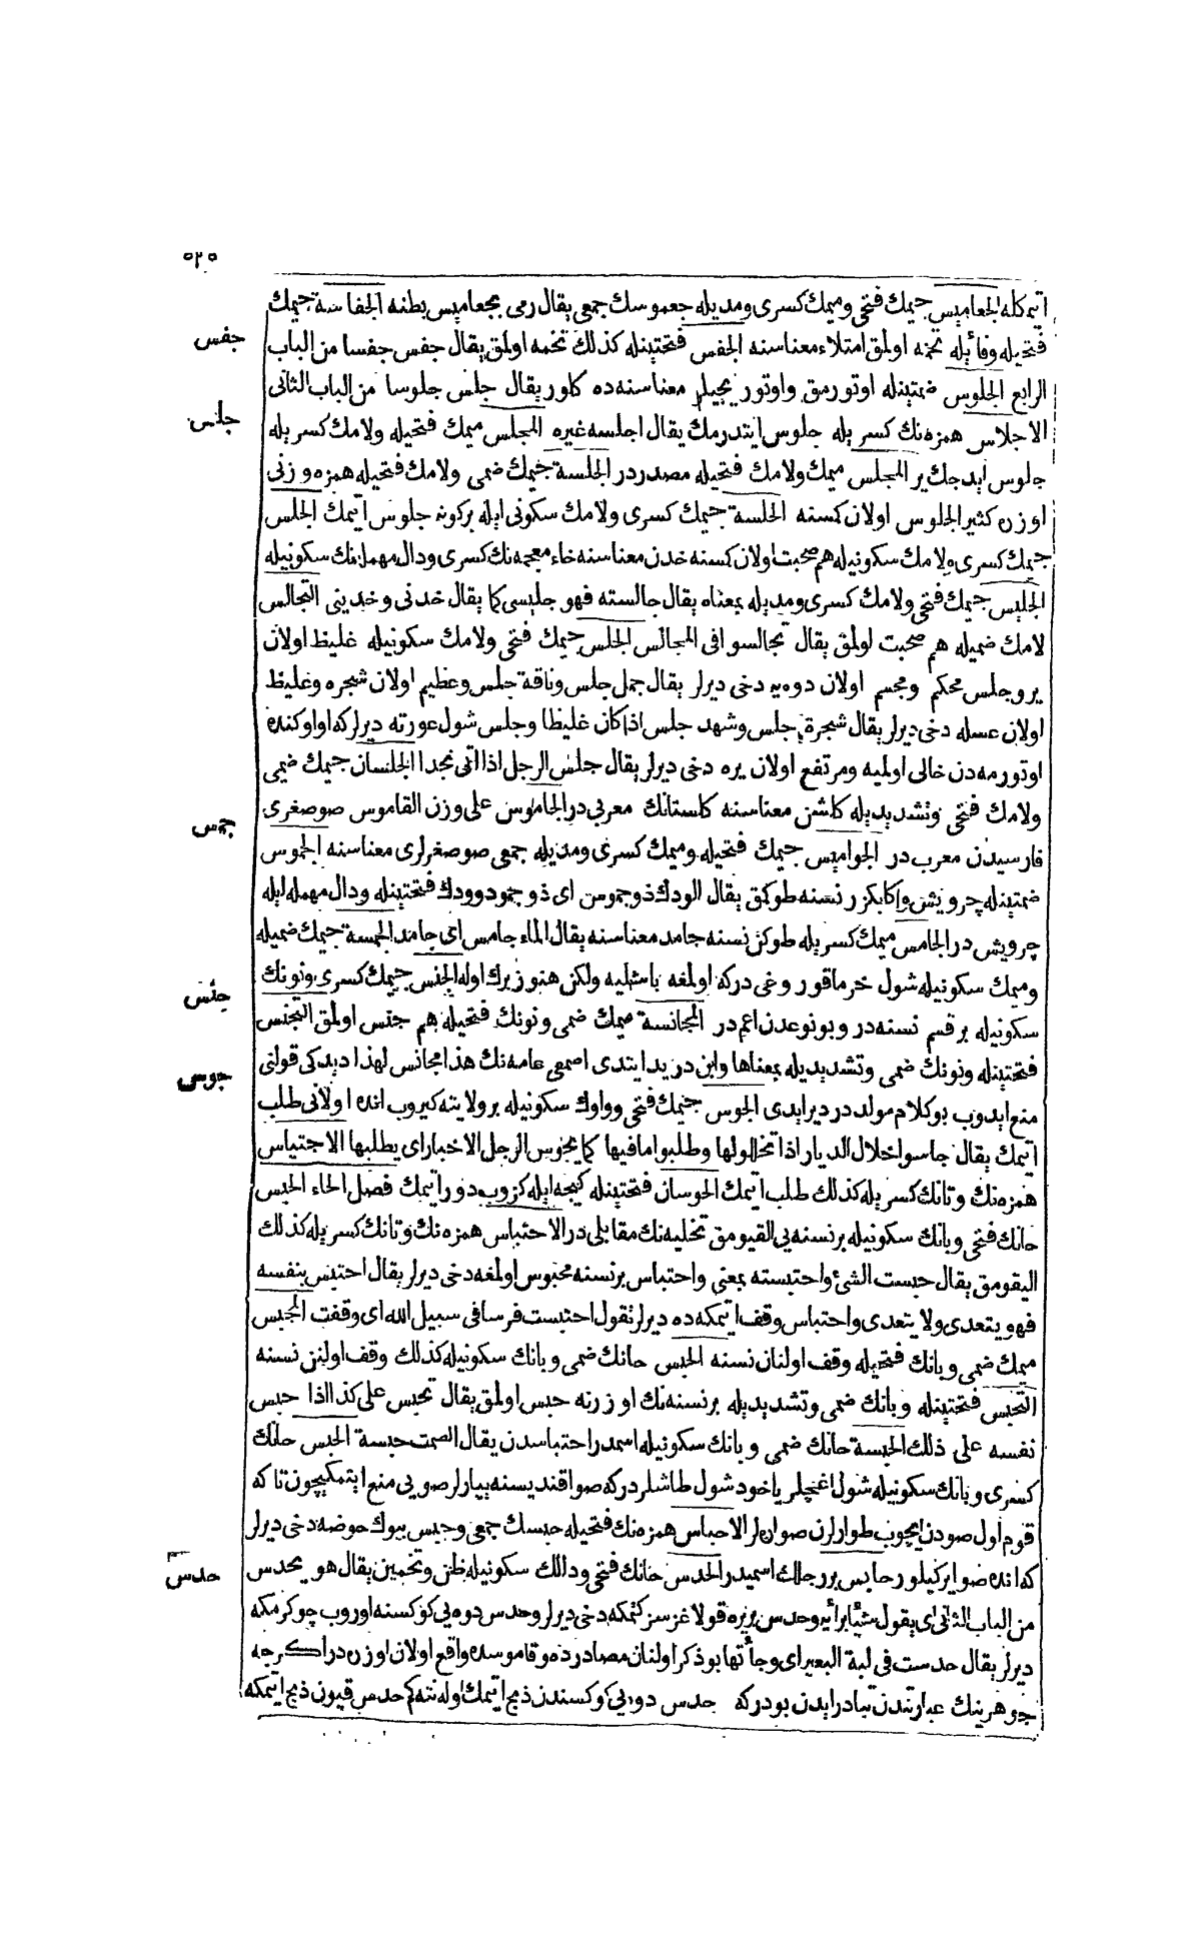 ٥٢٥
اتمكله الجعاميس جيمك فتحى وميمك كسرى ومديله جعموسك جمعى يقال رمى بجعاميس بطنه الجفاسة جيمك
جفس
فتحيله وفائيله تخمه اولمق امتلاء معناسنه الجفس فتحتينله كذلك تخمه اولمق يقال جفس جفسا من الباب
الرابع الجلوس ضمتينله اوتورمق واوتوريجيلر معناسنده كلور يقال جلس جلوسا من الباب الثانى
جلس
الاجلاس همزه نك كسريله جلوس ايتدرمك يقال اجلسه غيره المجلس ميمك فتحيله ولامك كسريله
جلوس ايدجك ير المجلس ميمك ولامك فتحيله مصدردر الجلسة جيمك ضمى ولامك فتحيله همزه وزنى
اوزره كثير الجلوس اولان كسنه الجلسة جيمك كسرى ولامك سكونى ايله بركونه جلوس اتمك الجلس
جيمك كسرى ولامك سكونيله هم صحبت اولان كسنه خدن معناسنه خاء معجمه نك كسرى ودال مهمله نك سكونيله
الجليس جيمك فتحى ولامك كسرى ومديله بمعناه يقال جالسته فهو جليسى كما يقال خدنى وخدينى التجالس
لامك ضميله هم صحبت اولمق يقال تجالسوا فى المجالس الجلس جيمك فتحى ولامك سكونيله غليظ اولان
ير وجلس محكم ومجسم اولان دوه يه دخى ديرلر يقال جمل جلس وناقة جلس وعظيم اولان شجره وغليظ
اولان عسله دخى ديرلر يقال شجرة جلس وشهد جلس اذا كان غليظا وجلس شول عورته ديرلر كه اواوكنده
اوتورمه دن خالى اولميه ومرتفع اولان يره دخى ديرلر يقال جلس الرجل اذا اتى نجدا الجلسان جيمك ضمى
ولامك فتحى وتشديديله كلشن معناسنه كلستانك معربى در الجاموس على وزن القاموس صوصغرى
جمس
فارسيدن معرب در الجواميس جيمك فتحيله وميمك كسرى ومديله جمعى صوصغرلرى معناسنه الجموس
ضمتينله چرويش واكا بكزر نسنه طوكمق يقال الودك ذوجموس اى ذوجمود وودك فتحتينله ودال مهمله ايله
چرويش در الجامس ميمك كسريله طوكن نسنه جامد معناسنه يقال الماء جامس اى جامد الجمسة جيمك ضميله
وميمك سكونيله شول خرما قوروغى در كه اولمغه باشليه ولكن هنوز برك اوله الجنس جيمك كسرى ونونك
جنس
سكونيله بر قسم نسنه در وبو نوعدن اعم در المجانسة ميمك ضمى ونونك فتحيله هم جنس اولمق التجنس
فتحتينله ونونك ضمى وتشديديله بمعناها وابن دريد ايتدى اصمعى عامه نك هذا مجانس لهذا ديدكى قولنى
جوس
منع ايدوب بو كلام مولد در دير ايدى الجوس جيمك فتحى وواوك سكونيله بر ولايته كيروب انده اولانى طلب
اتمك يقال جاسوا خلال الديار اذا تخللوها وطلبوا ما فيها كما يجوس الرجل الاخبار اى يطلبها الاجتياس
همزه نك وتانك كسريله كذلك طلب اتمك الجوسان فتحتينله كيجه ايله كزوب دور اتمك فصل الحاء الحبس
حانك فتحى وبانك سكونيله برنسنه يى القيومق تخليه نك مقابلى در الاحتباس همزه نك وتانك كسريله كذلك
اليقومق يقال حبست الشئ واحتبسته بمعنى واحتباس برنسنه محبوس اولمغه دخى ديرلر يقال احتبس بنفسه
فهو يتعدى ولا يتعدى واحتباس وقف اتمكه ده ديرلر نقول احتبست فرسا فى سبيل الله اى وقفت المحبس
ميمك ضمى وبانك فتحيله وقف اولنان نسنه الحبس حانك ضمى وبانك سكونيله كذلك وقف اولنن نسنه
التحبس فتحتينله وبانك ضمى وتشديديله برنسنه نك اوزرنه حبس اولمق يقال تحبس على كذا اذا حبس
نفسه على ذلك الحبسة حانك ضمى وبانك سكونيله اسمدر احتباسدن يقال الصمت حبسة الحبس حانك
كسرى وبانك سكونيله شول اغچلر ياخود شول طاشلردر كه صواقنديسنه ييارلر صويى منع ايتمكيچون تاكه
قوم اول صودن ايچوب طوارلرن صواره لر الاحباس همزه نك فتحيله حبسك جمعى وحبس بيوك حوضه دخى ديرلر
كه انده صو ايركيلور حابس بر رجلك اسميدر الحدس حانك فتحى ودالك سكونيله ظن وتخمين يقال هو يحدس
حدس
من الباب الثانى اى يقول شيئا برأيه وحدس يريزه قولاغزسز كتمكه دخى ديرلر وحدس دوه يى كوكسنه اوروب چوكرمكه
ديرلر يقال حدست فى لبة البعير اى وجأتها بو ذكر اولنان مصادرده وقاموسده واقع اولان اوزره در اكرچه
جوهرينك عبارتندن تبادر ايدن بودر كه حدس دوه يى كوكسندن ذبح اتمك اوله نته كم حدس قيون ذبح اتمكه